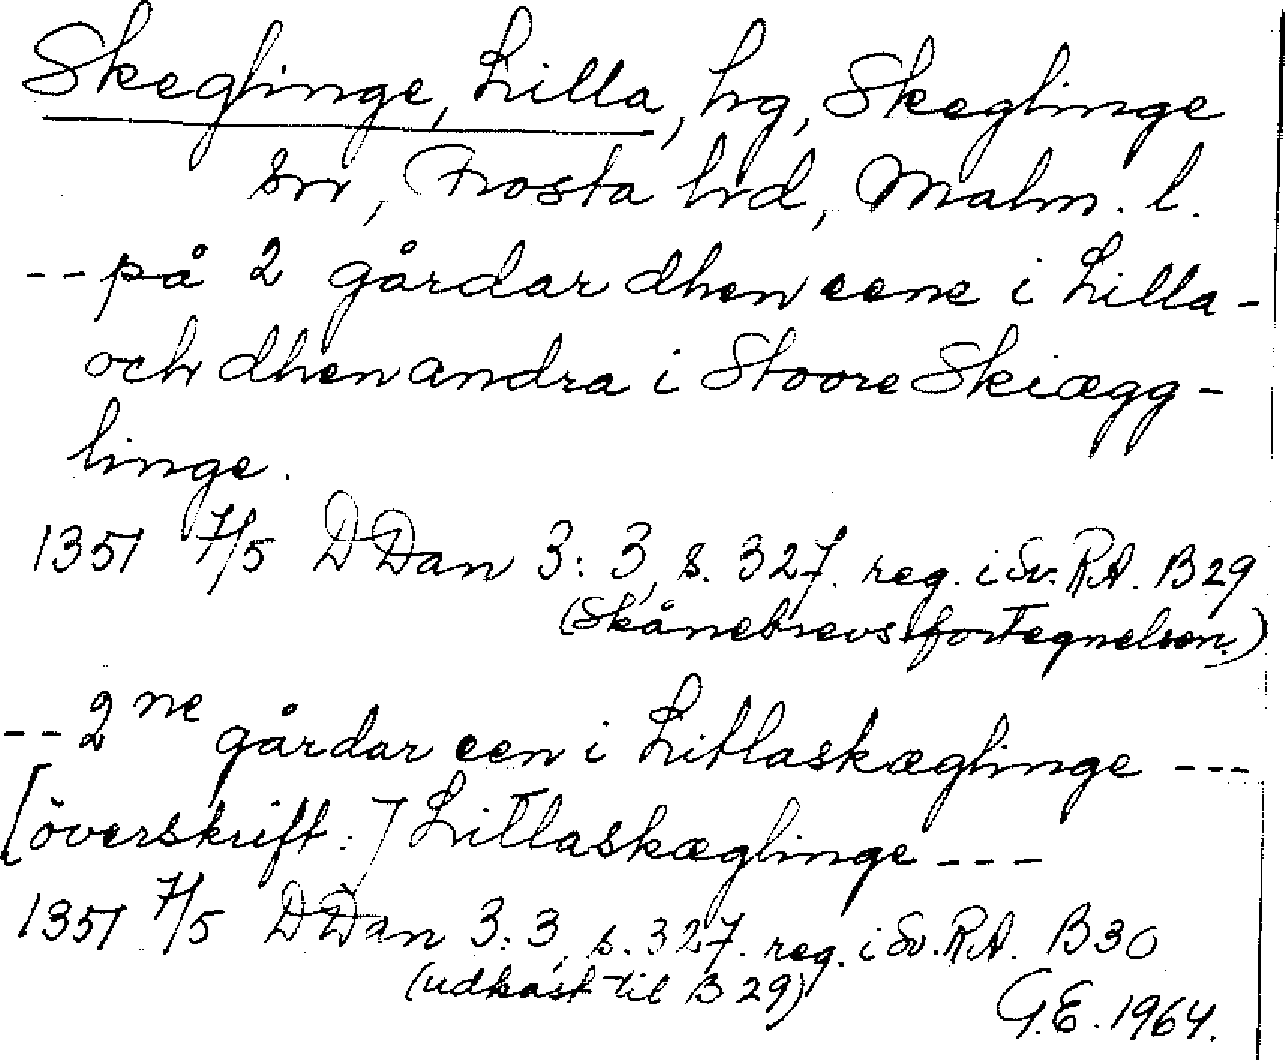 Skeglinge, Lilla, hg, Skeglinge
sn, Frosta hd, Malm. l.
-- på 2 gårdar dhen eene i Lilla -
och dhen andra i Stoore Skiægg-
linge.
1351 7/5 DDan 3:3, s. 327. reg. i Sv. RA. B29
(Skånebrevsfortegnelsen.)
-- 2ne gårdar een i Litlaskæglinge ---
[överskrift:] Litlaskæglinge ---
1351 7/5 DDan 3:3, s. 327. reg. i Sv. RA. B30
(udkast til B29)
G.E. 1964.